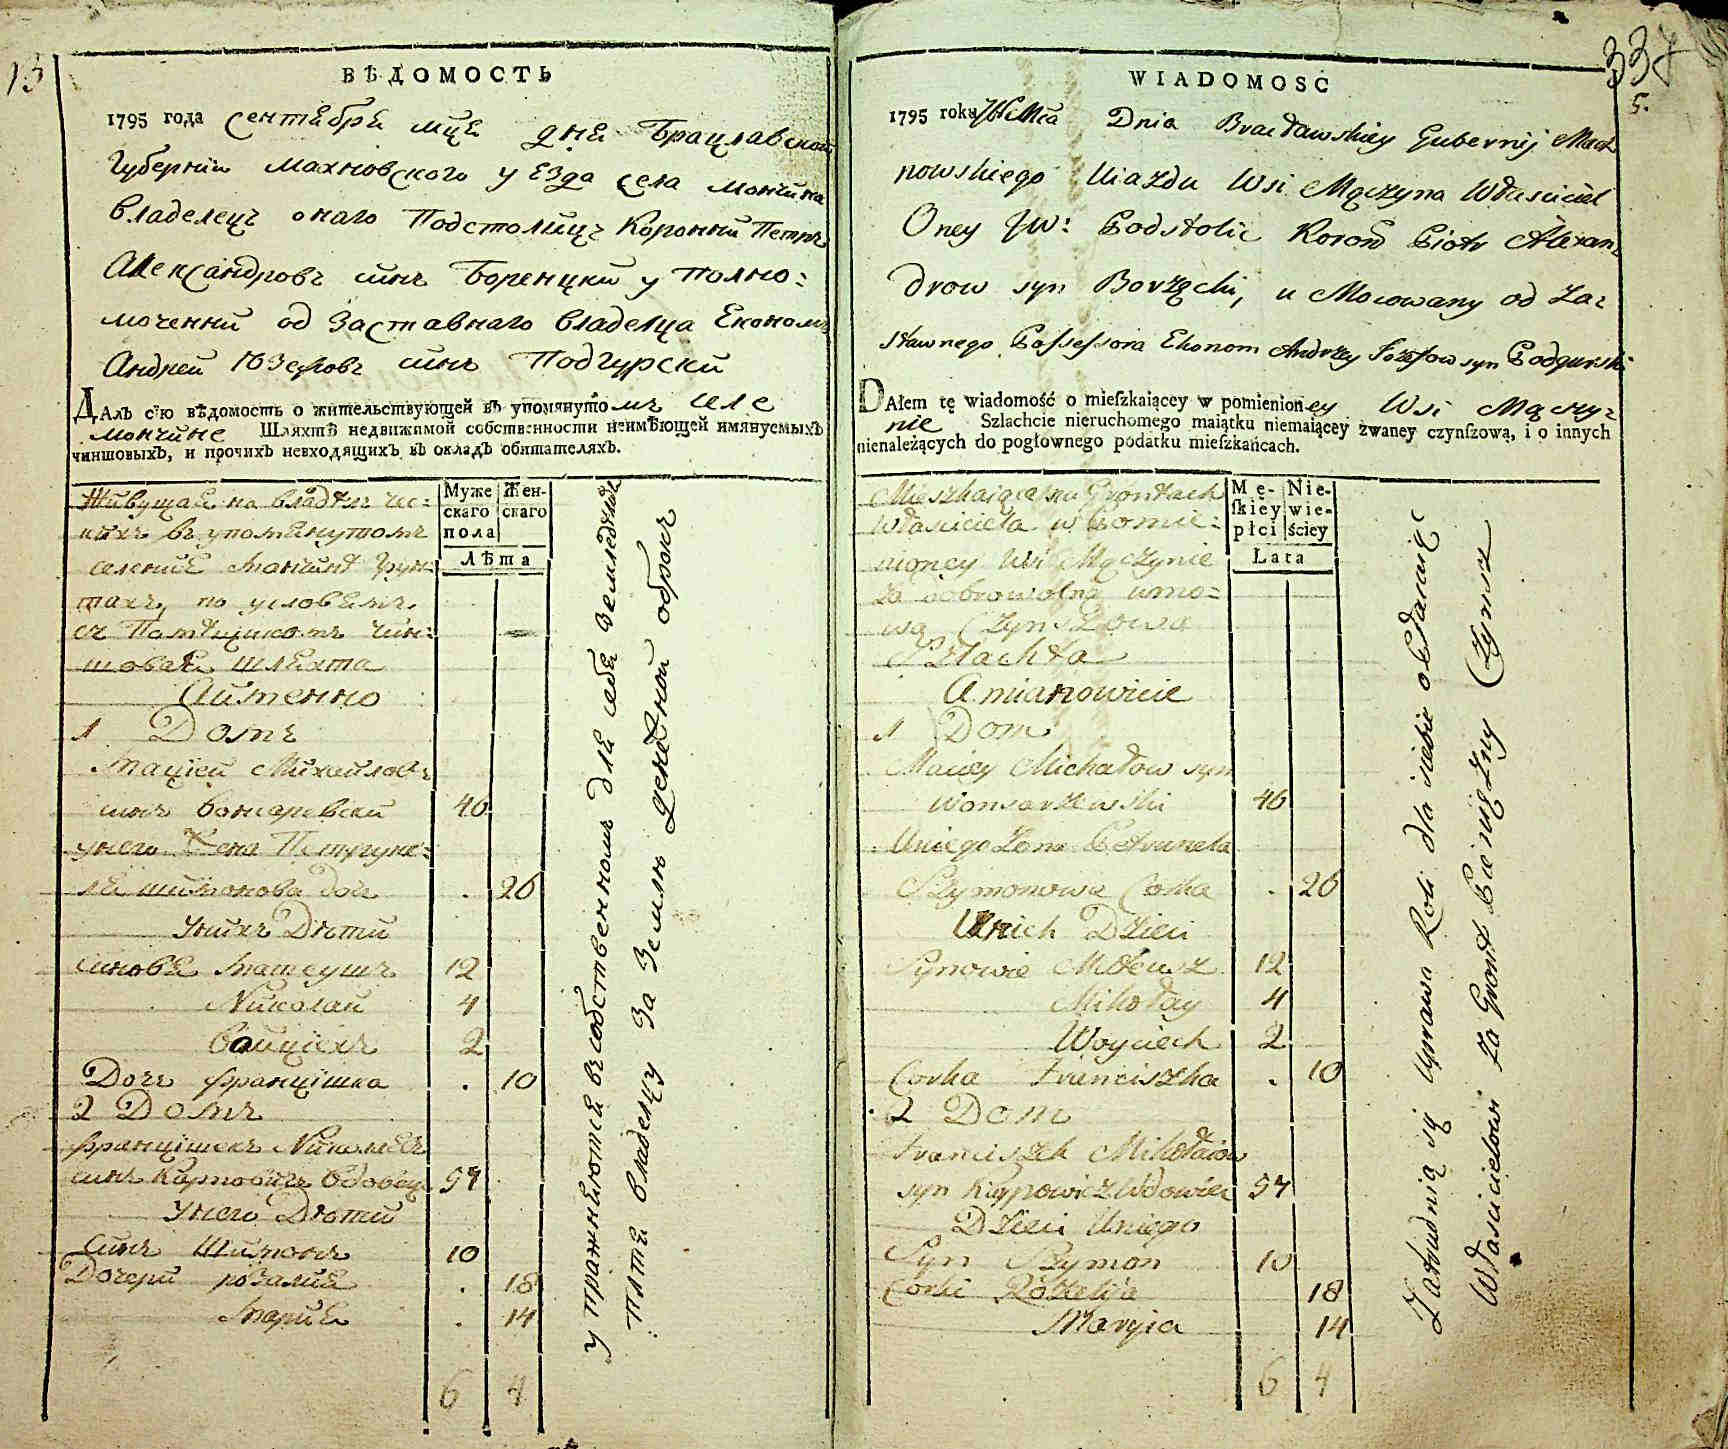 13
ВѢДОМОСТЬ
1795 года сентября мца дня Брацлавской
Губернїи Махновского уезда села Мончина
владелец онаго Подстолиц Коронни Петръ
Александровъ синъ Боренцки уполно:
моченни од заставнаго владелца Економъ
Андреи Юзефовъ синъ Подгурски
Далъ сїю вѣдомость о жительствующей въ упомянутомъ селе
Мончине Шляхтѣ недвижимой собственности неимѣющей имянуемыхъ
чиншовыхъ, и прочихъ невходящихъ въ окладъ обитателяхъ.
Муже Жен-
скаго скаго
пола
Лѣта
Живущая на владелче:
скихъ в упомянутомъ
селении Мончине грун:
тахъ, по условiямъ
съ Помещикомъ чин:
шовая шляхта
Аименно
1 Домъ
Мацiей Михайловъ
синъ Вонсаревски 46
унего Жена Петруне:
ля Шимонова дочь . 26
Унихъ Дети
Синовя Матеушъ 12
Николай 4
Войцiехъ 2
Дочь Францiшка . 10
2 Домъ
Францiшекъ Николаевъ
синъ Карповичъ вдовецъ 57
Унего Дети
Синъ Шимонъ 10
Дочери Розалия . 18
Мария . 14
6 4
упражняются в собственномъ для себя земледелии
платя владелцу за землю денежной оброкъ
337
5.
WIADOMOSC
1795 roku 7bra Mca Dnia Bracławskiey Gubernij Mach
nowskiego Uiazdu Wsi Mączyna Właściciel
Oney JW: Podstolic Koron Piotr Alexan:
drow syn Borzęcki, u Mocowany od Za:
stawnego Possessora Ekonom Andrzey Jozefow syn Podgurski
DAłem tę wiadomość o mieſzkaiącey w pomienioney Wsi Mączy:
nie Szlachcie nieruchomego maiątku niemaiącey zwaney czynſzową, i o innych
nienależących do pogłownego podatku mieſzkańcach.
Mę- Nie-
ſkiey wie-
płci ściey
Lata
Mieszkaiąca na Grontach
Właściciela w Pomie:
nioney Wsi Mączynie
Za dobrowolną umo:
wą Czynszowa
Szlachta
Amianowicie
1 Dom
Maciey Michałow syn
Wonsarzewski 46
Uniego Żona Petrunela
Szymonowa Corka . 26
Unich Dzieci
Synowie Mateusz 12
Mikołay 4
Woyciech 2
Corka Franciszka . 10
2 Dom
Franciszek Mikołaiow
syn Karpowicz Wdowiec 57
Dzieci Uniego
Syn Szymon 10
Corki Rozalia 18
Maryia 14
6 4
Zatrudnią się Uprawą Roli dla siebie opłacaiąc
Właścicielowi za Gront Pieniężny Czynsz